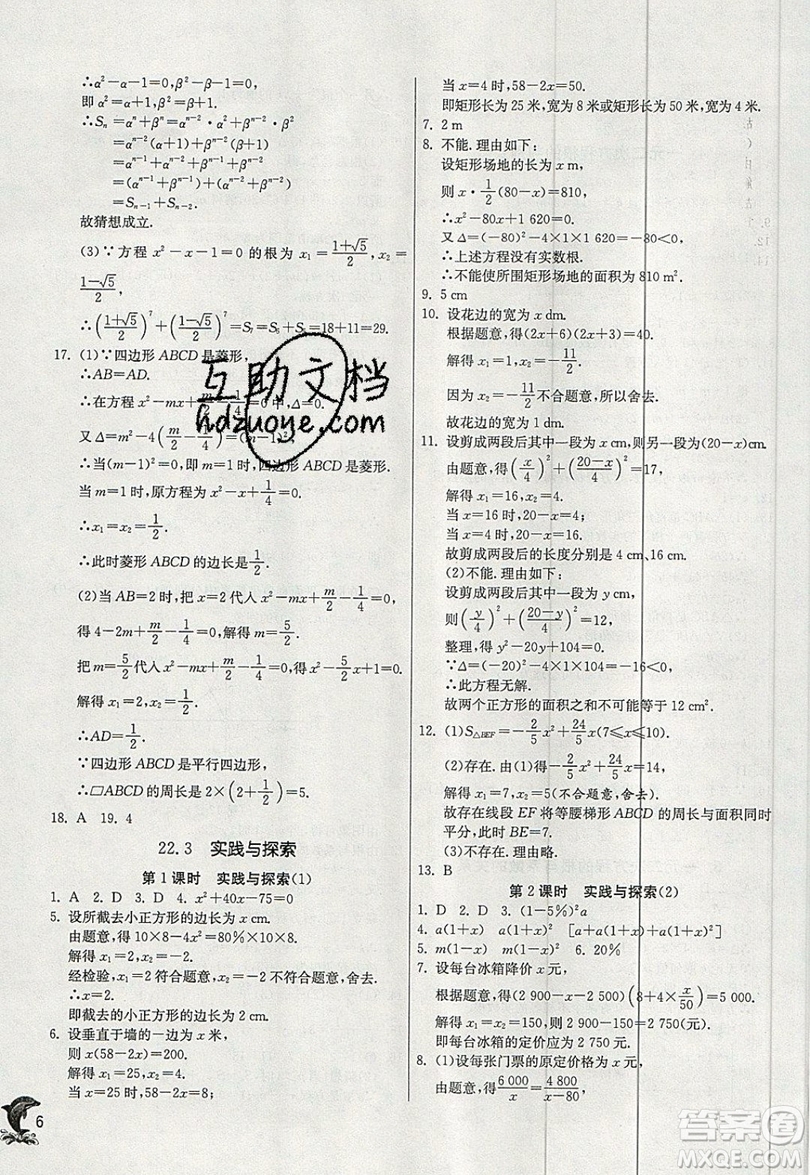 ∴α²－α－1＝0,β²－β－1＝0.
即 α²＝α＋1,β²＝β＋1.
∴Sₙ＝αⁿ＋βⁿ＝αⁿ⁻²·α²＋βⁿ⁻²·β²
＝αⁿ⁻²(α＋1)＋βⁿ⁻²(β＋1)
＝αⁿ⁻¹＋αⁿ⁻²＋βⁿ⁻¹＋βⁿ⁻²
＝αⁿ⁻¹＋βⁿ⁻¹＋αⁿ⁻²＋βⁿ⁻²
＝Sₙ₋₁＋Sₙ₋₂.
故猜想成立.
(3)∵方程 x²－x－1＝0的根为 x₁＝(1＋√5)/2,x₂＝
(1－√5)/2,
∴((1＋√5)/2)⁷＋((1－√5)/2)⁷＝S₇＝S₆＋S₅＝18＋11＝29.
17. (1)∵四边形 ABCD 是菱形,
∴AB＝AD.
∴在方程 x²－mx＋m/2－1/4＝0中,Δ＝0.
又 Δ＝m²－4(m/2－1/4)＝(m－1)²,
∴当(m－1)²＝0时,四边形 ABCD 是菱形.
当 m＝1时,原方程为 x²－x＋1/4＝0.
∴x₁＝x₂＝1/2.
∴此时菱形 ABCD 的边长是1/2.
(2)当 AB＝2时,把 x＝2代入 x²－mx＋m/2－1/4＝0,
得4－2m＋m/2－1/4＝0,解得 m＝5/2.
把 m＝5/2代入 x²－mx＋m/2－1/4＝0,
解得 x₁＝2,x₂＝1/2.
∴AD＝1/2.
∵四边形 ABCD 是平行四边形,
∴□ABCD 的周长是 2×(2＋1/2)＝5.
18. A 19. 4
22.3 实践与探索
第1课时 实践与探索(1)
1. A 2. D 3. D 4. x²＋40x－75＝0
5. 设所截去小正方形的边长为 x cm.
由题意,得 10×8－4x²＝80%×10×8.
解得 x₁＝2,x₂＝－2.
经检验,x₁＝2符合题意,x₂＝－2不符合题意,舍去.
∴x＝2.
即截去的小正方形的边长为 2 cm.
6. 设垂直于墙的一边为 x 米,
则 x(58－2x)＝200.
解得 x₁＝25,x₂＝4.
当 x＝25时,58－2x＝8;
当 x＝4时,58－2x＝50.
即矩形长为 25 米,宽为 8 米或矩形长为 50 米,宽为 4 米.
7. 2 m
8. 不能. 理由如下:
设矩形场地的长为 x m,
则 x·1/2(80－x)＝810.
∴x²－80x＋1 620＝0.
又 Δ＝(－80)²－4×1×1 620＝－80＜0,
∴上述方程没有实数根.
∴不能使所围矩形场地的面积为 810 m².
9. 5 cm
10. 设花边的宽为 x dm.
根据题意,得 (2x＋6)(2x＋3)＝40.
解得 x₁＝1,x₂＝－11/2.
因为 x₂＝－11/2不合题意,所以舍去.
故花边的宽为 1 dm.
11. 设剪成两段后其中一段为 x cm,则另一段为(20－x)cm.
由题意,得(x/4)²＋((20－x)/4)²＝17,
解得 x₁＝16,x₂＝4.
当 x＝16时,20－x＝4;
当 x＝4时,20－x＝16.
故剪成两段后的长度分别是 4 cm,16 cm.
(2)不能. 理由如下:
设剪成两段后其中一段为 y cm,
则(y/4)²＋((20－y)/4)²＝12,
整理,得 y²－20y＋104＝0.
∵Δ＝(－20)²－4×1×104＝－16＜0,
∴此方程无解.
故两个正方形的面积之和不可能等于 12 cm².
12. (1)S△BEF＝－2/5x²＋24/5x(7≤x≤10).
(2)存在. 由题意,得－2/5x²＋24/5x＝14.
解得 x₁＝7,x₂＝5(不合题意,舍去).
故存在线段 EF 将等腰梯形 ABCD 的周长与面积同时
平分,此时 BE＝7.
(3)不存在. 理由略.
13. B
第2课时 实践与探索(2)
1. D 2. D 3. (1－5%)²a
4. a(1＋x) a(1＋x)² [a＋a(1＋x)＋a(1＋x)²]
5. m(1－x) m(1－x)² 6. 20%
7. 设每台冰箱降价 x 元,
根据题意,得 (2 900－x－2 500)(8＋4×x/50)＝5 000.
解得 x₁＝x₂＝150. 则 2 900－150＝2 750(元).
即每台冰箱的定价应为 2 750 元.
8. (1)设每张门票的原定价格为 x 元,
由题意,得6 000/x＝4 800/(x－80).
6
互助文档
hdzuoye.com
答案圈
MXQE.COM